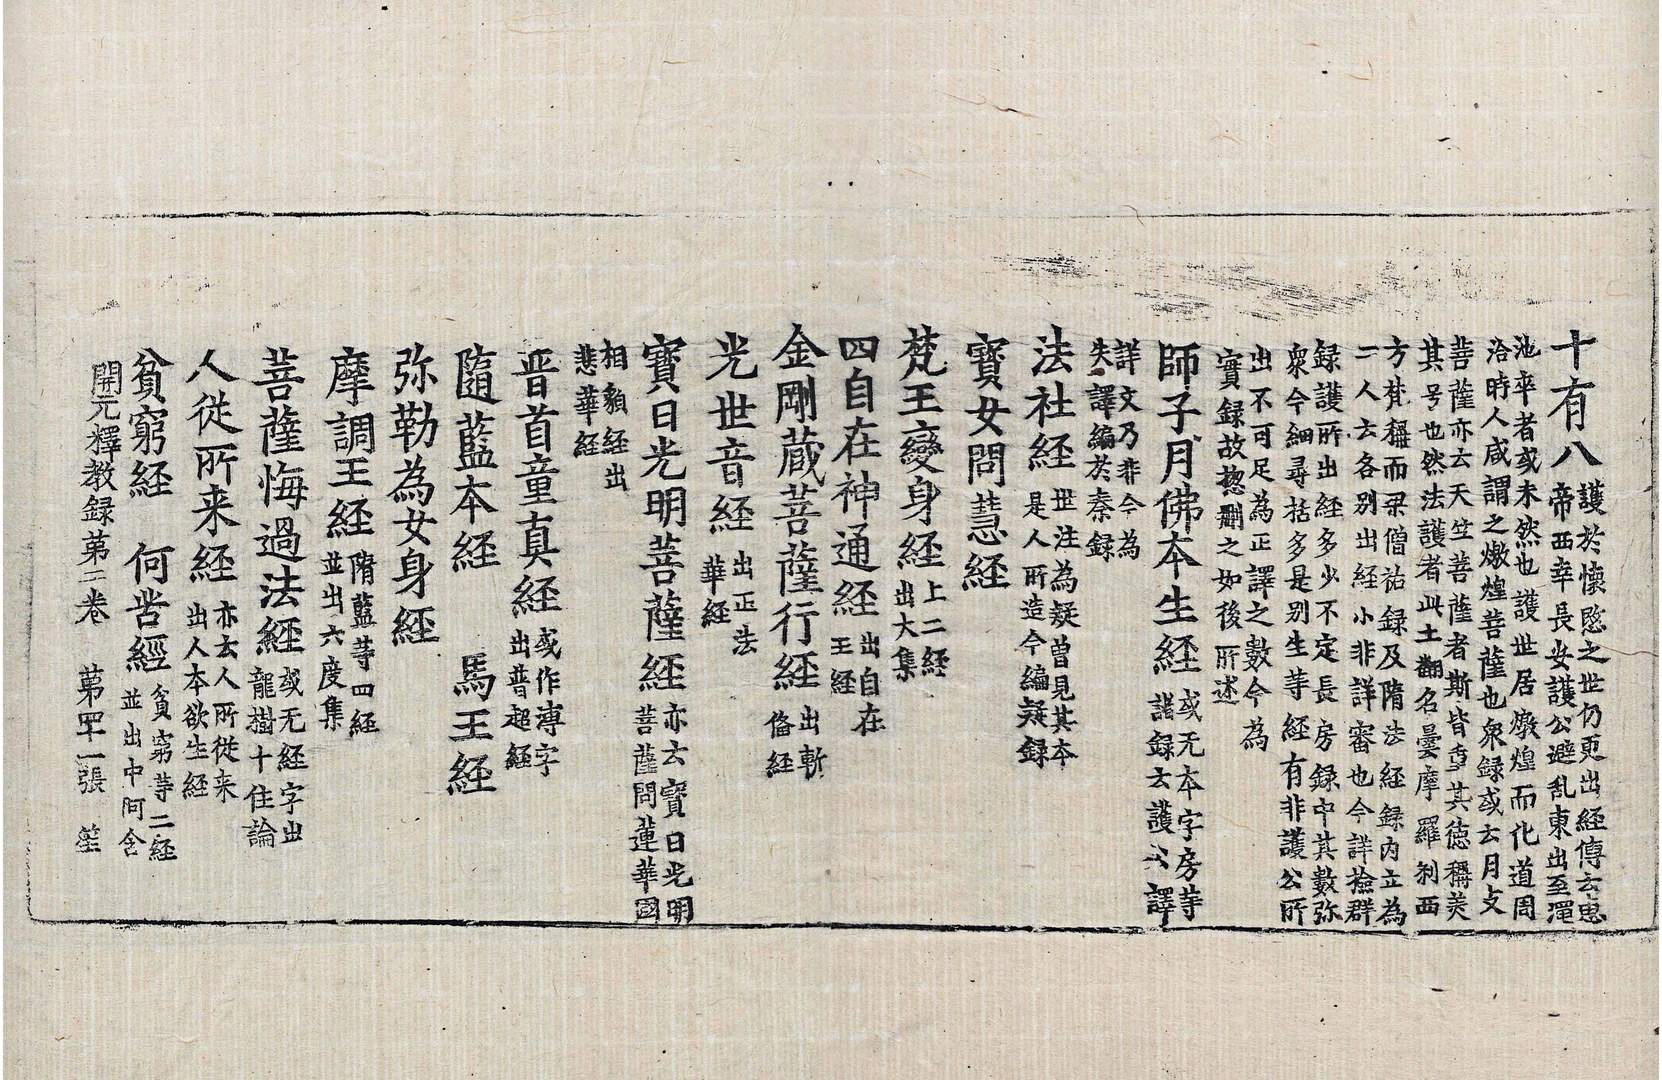 十有八
護於懷愍之世仍更出經傳云愍
帝西幸長安護公避乱東出至澠
池卒者或未然也護世居燉煌而化道周
洽時人咸謂之燉煌菩薩也衆録或云月支
菩薩亦云天竺菩薩者斯皆重其德稱美
其号也然法護者此土翻名曇摩羅刹西
方梵稱而梁僧祐録及隋法経録内立為
二人云各別出経小非詳審也今詳撿群
録護所出経多少不定長房録中其數弥
衆今細尋括多是別生等経有非護公所
出不可足為正譯之數今為
實録故揔刪之如後所述
師子月佛本生経
或无本字房等
諸録云護公譯
詳文乃非今為
失譯編於秦録
法社経
世注為疑曽見其本
是人所造今編疑録
寳女問慧経
梵王變身経
上二経
出大集
四自在神通経
出自在
王経
金剛蔵菩薩行経
出漸
俻経
光世音経
出正法
華経
寳日光明菩薩経
亦云寳日光明
菩薩問蓮華國
相貌経出
悲華経
晋首童真経
或作溥字
出普超経
隨藍本経　馬王経
弥勒為女身経
摩調王経
隋藍等四経
並出六度集
菩薩悔過法経
或无経字出
龍樹十住論
人従所来経
亦云人所従来
出人本欲生経
貧窮経　何苦經
貧窮等二経
並出中阿含
開元釋教録第二卷　第罒二張　笙